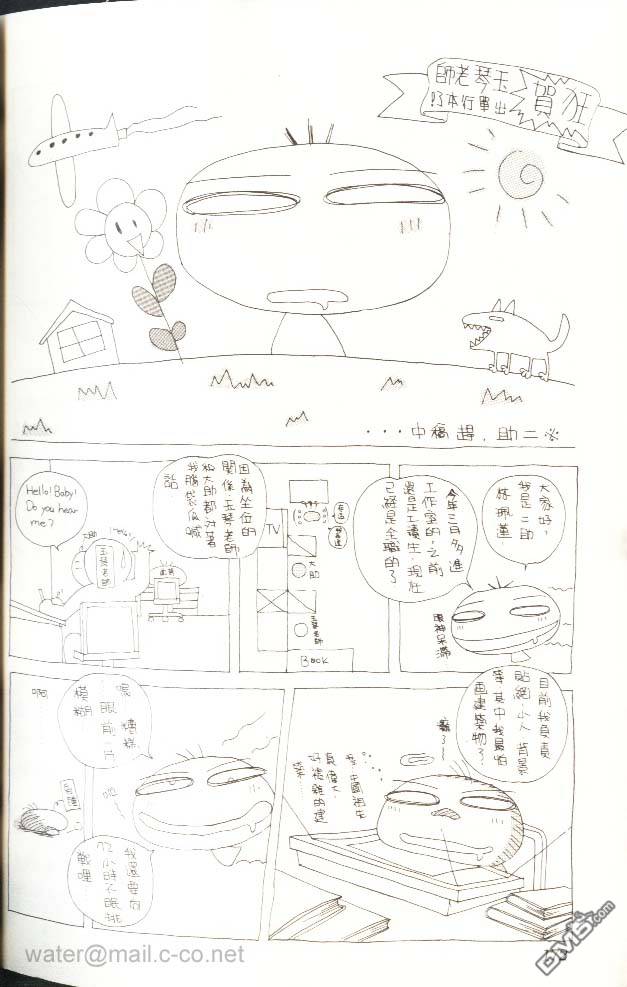 狂賀
玉琴老師
出單行本了!
※二助，趕稿中・・・
大家好，
我是二助
林珮蓳．
今年三月多進
工作室的，之前
還是工讀生，現在
已經是全職的了
眼神呆滯
TV
大助
玉琴老師
Book
因為坐位的
關係，玉琴老師
和大助都對著
我腦袋瓜喊
話
Hello! Baby!
Do you hear
me?
大助
Hello!
玉琴老師
目前我負責
貼網、小人、背景
等，其中我最怕
畫建築物了~
真偉大，
好複雜的建
築…
嗯，糟糕，
眼前一片
模糊
我還要向
72小時不眠挑
戰哩
啊
water@mail.c-co.net